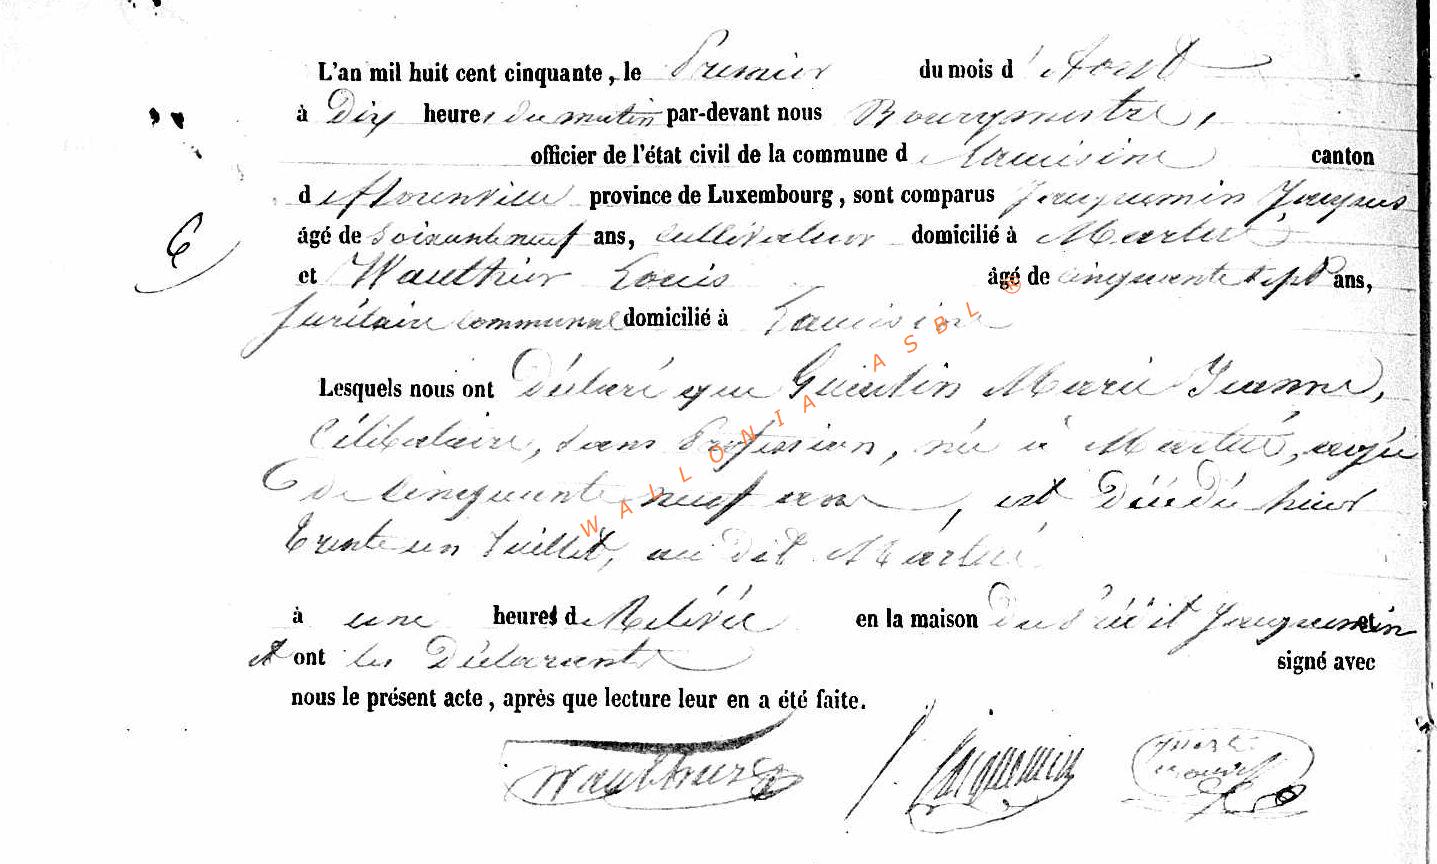 L'an mil huit cent cinquante, le Premier du mois d' Aout
à Dix heures du matin par-devant nous Bourgmestre,
officier de l'état civil de la commune de Lacuisine canton
de florenville province de Luxembourg, sont comparus Jacquemin Jacques
âgé de Soixante neuf ans, Cultivateur domicilié à Martué
6
et Wauthier Louis âgé de Cinquante sept ans,
communal domicilié à Lacuisine
Lesquels nous ont Déclaré que Marie Jeanne,
Célibataire, Sans Profession, née à Martué, agée
de Cinquante neuf ans, est Décédée hier
trente un Juillet, au dit Martué
à une heures de Relevée en la maison du Jacquemin et
et ont les Déclarants signé avec
nous le présent acte, après que lecture leur en a été faite.
Wauthier J. Jacquemin
WALLONIA ASBL ®